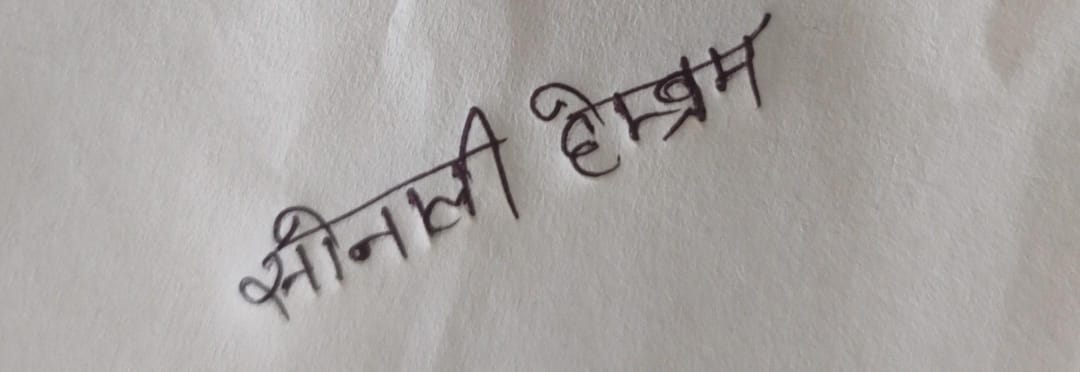 सोनाली हेम्ब्रम